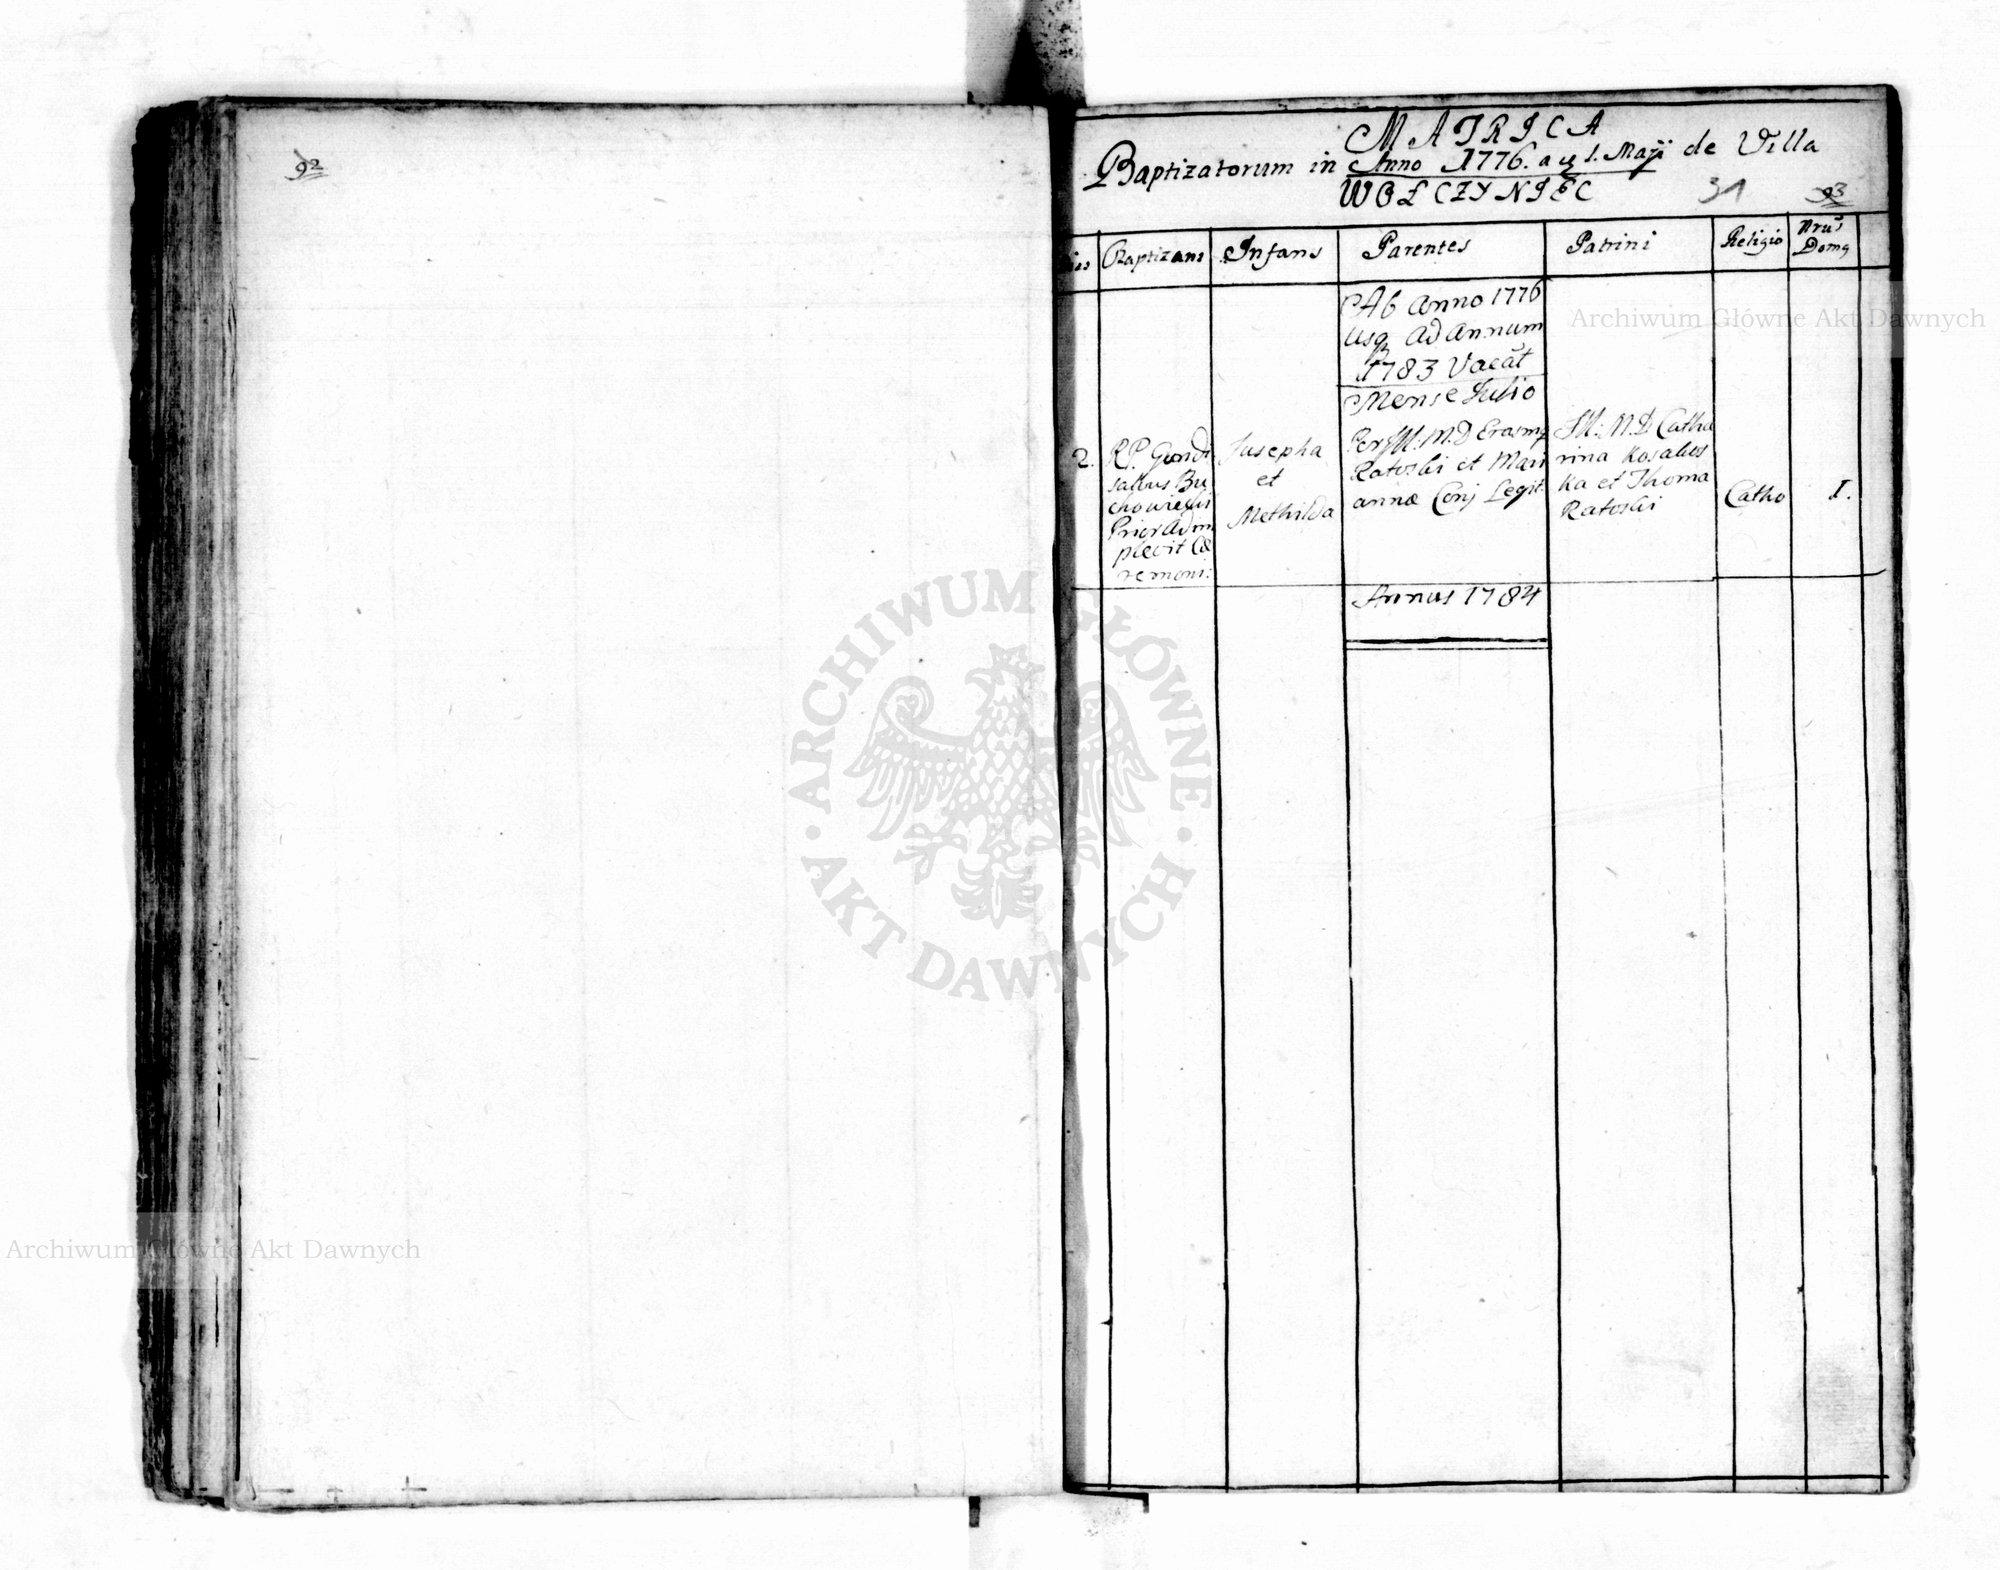 92
MATRICA
Baptizatorum in Anno 1776. a 1. Maji de Villa
WOŁCZYNIEC
31 93
Dies Baptizans Infans Parentes Patrini Religio Nrus Domq
Ab Anno 1776
Usq Ad Annum
1783 Vacat
Mense Julio
2.
RP. Gundi
salvus Bu
chowiecki
Prior Adim
plevit Cæ
remoni:
Jusepha
et
Methilda
Per Ill: M.D Erasmq
Ratoski et Mari
annæ Conj Legit.
Ill: M.D Catha
rina Kosakos
ka et Thoma
Ratoski
Catho
1.
Annus 1784
Archiwum Główne Akt Dawnych
ARCHIWUM GŁÓWNE
AKT DAWNYCH
Archiwum Główne Akt Dawnych